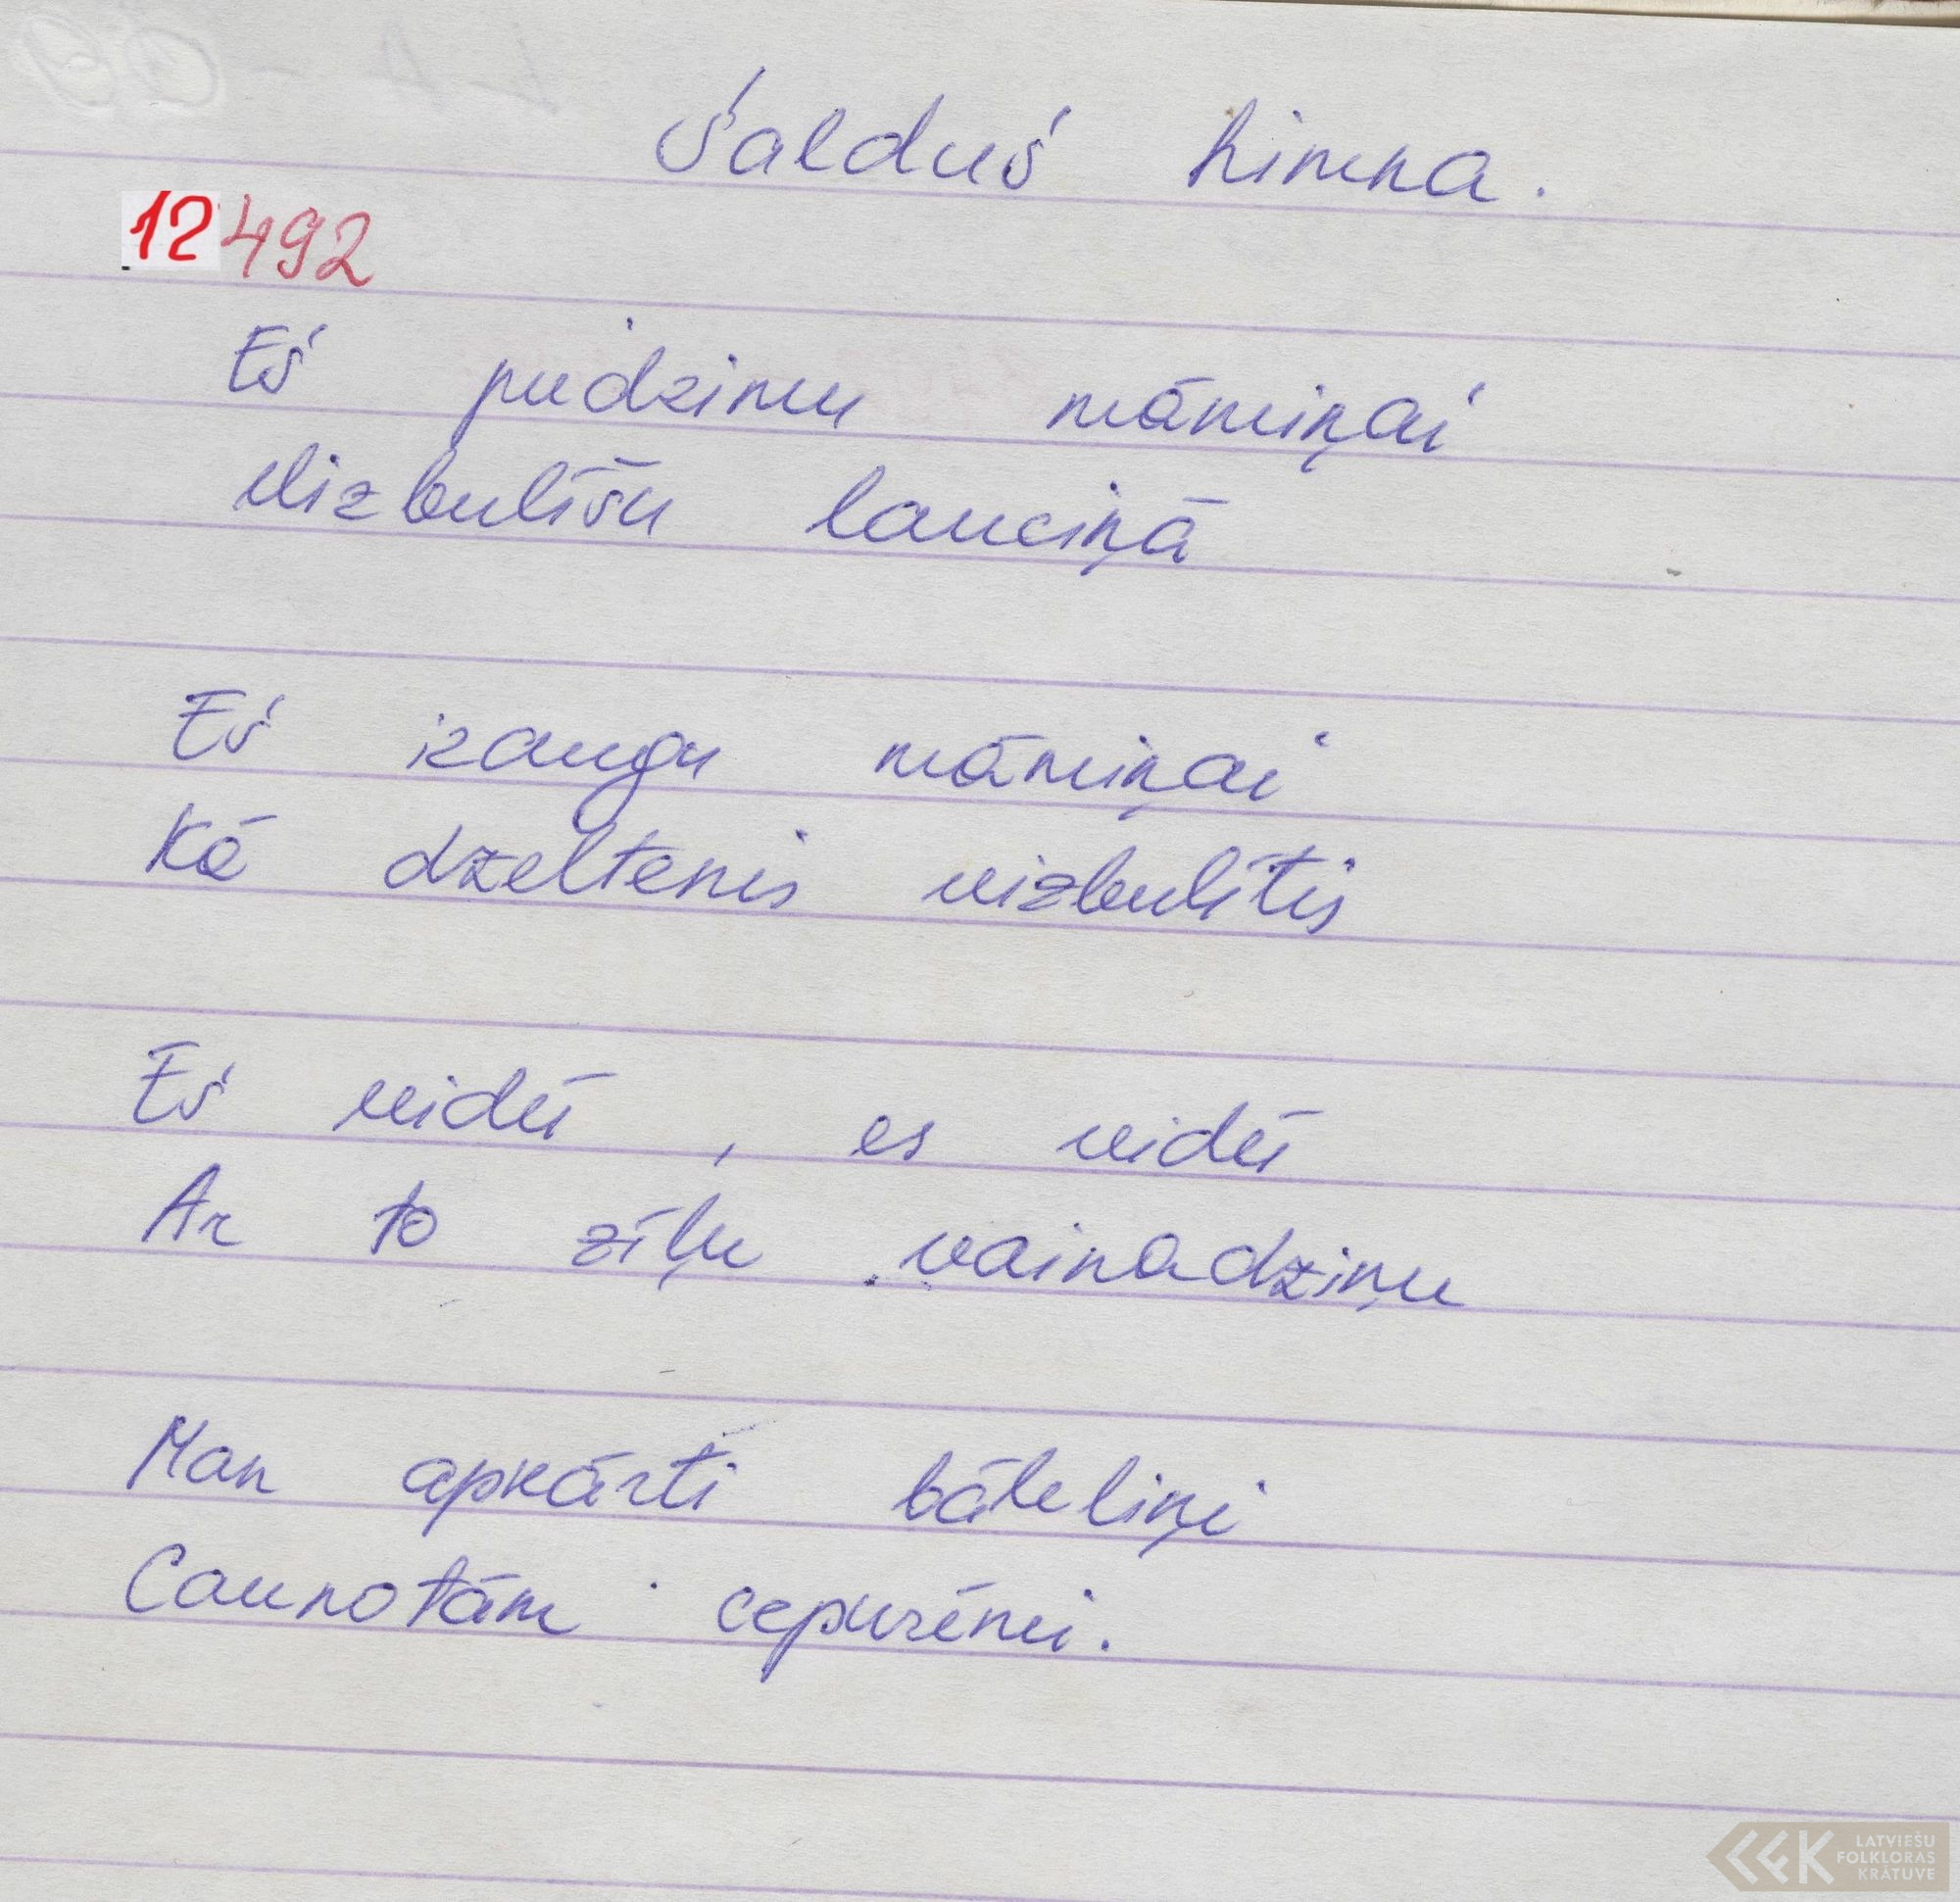 Saldus himna.
12492
Es pudzimu māmiņai
Vizbulīšu lauciņā
Es izaugu māmiņai
Kā dzeltenis vizbulītis
Es vidū, es vidū
Ar to zīļu vainadziņu
Man apkārti bāleliņi
Caunotām cepurēmi.
LATVIEŠU
FOLKLORAS
KRĀTUVE